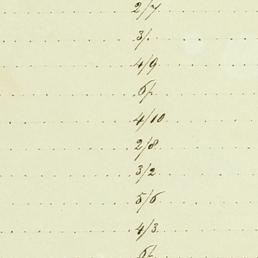 2/7
3/.
4/9
6/.
4/10
2/8
3/2
5/6
4/3
6/.